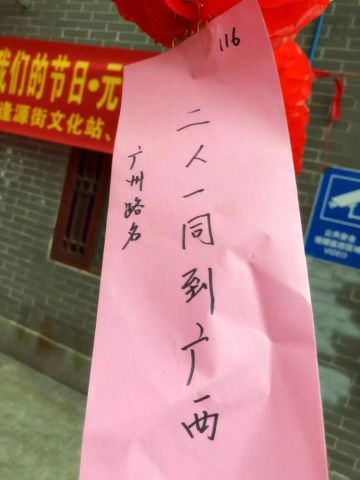 我们的节日·元
逢源街文化站、
116
二人一同到广西
广州路名
VIDEO